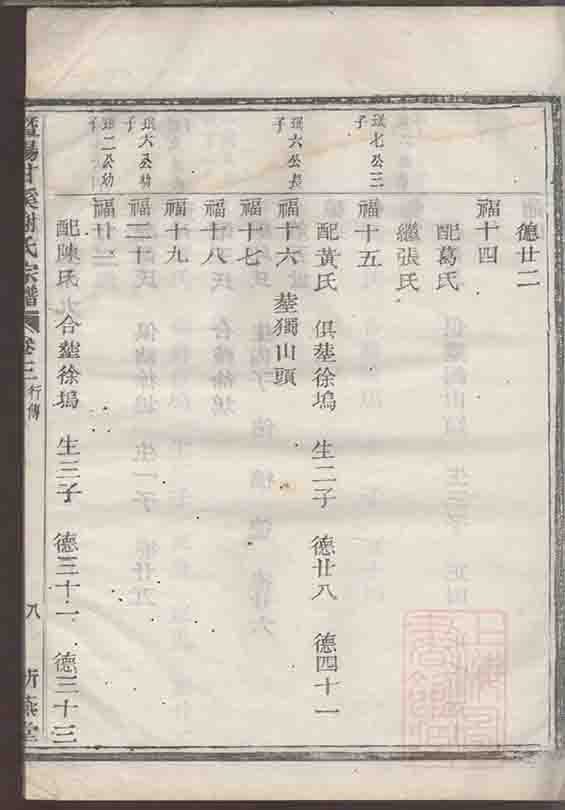 德廿二
福十四
配葛氏
繼張氏
珙七公三子
福十五
配黃氏 俱塟徐塢 生二子 德廿八 德四十一
珙六公長子
福十六 塟獨山頭
福十七
福十八
福十九
珙六公幼子
福二十
珙二公幼子
福廿一
配陳氏 合塟徐塢 生三子 德三十一 德三十三
暨陽甘溪謝氏宗譜 卷三 行傳 八